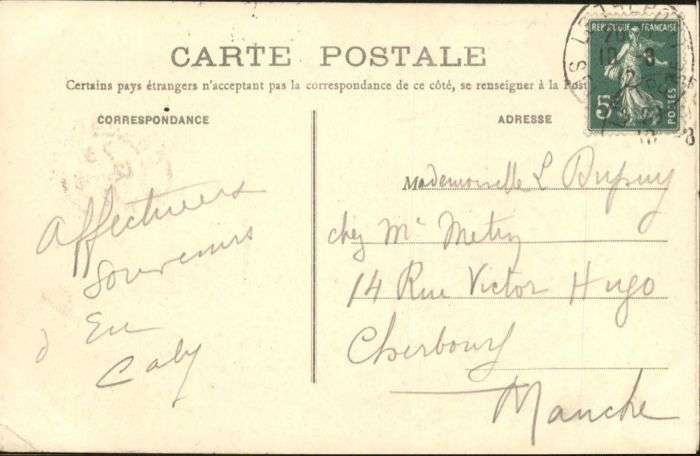 CARTE POSTALE
Certains pays étrangers n'acceptant pas la correspondance de ce côté, se renseigner à la Post
CORRESPONDANCE
ADRESSE
REPUBLIQUE FRANÇAISE
5c
POSTES
Affectueux
Souvenirs
d'Eu
Caby
Mademoiselle L Dupuy
chez Mr
14 Rue Victor Hugo
Cherbourg
Manche